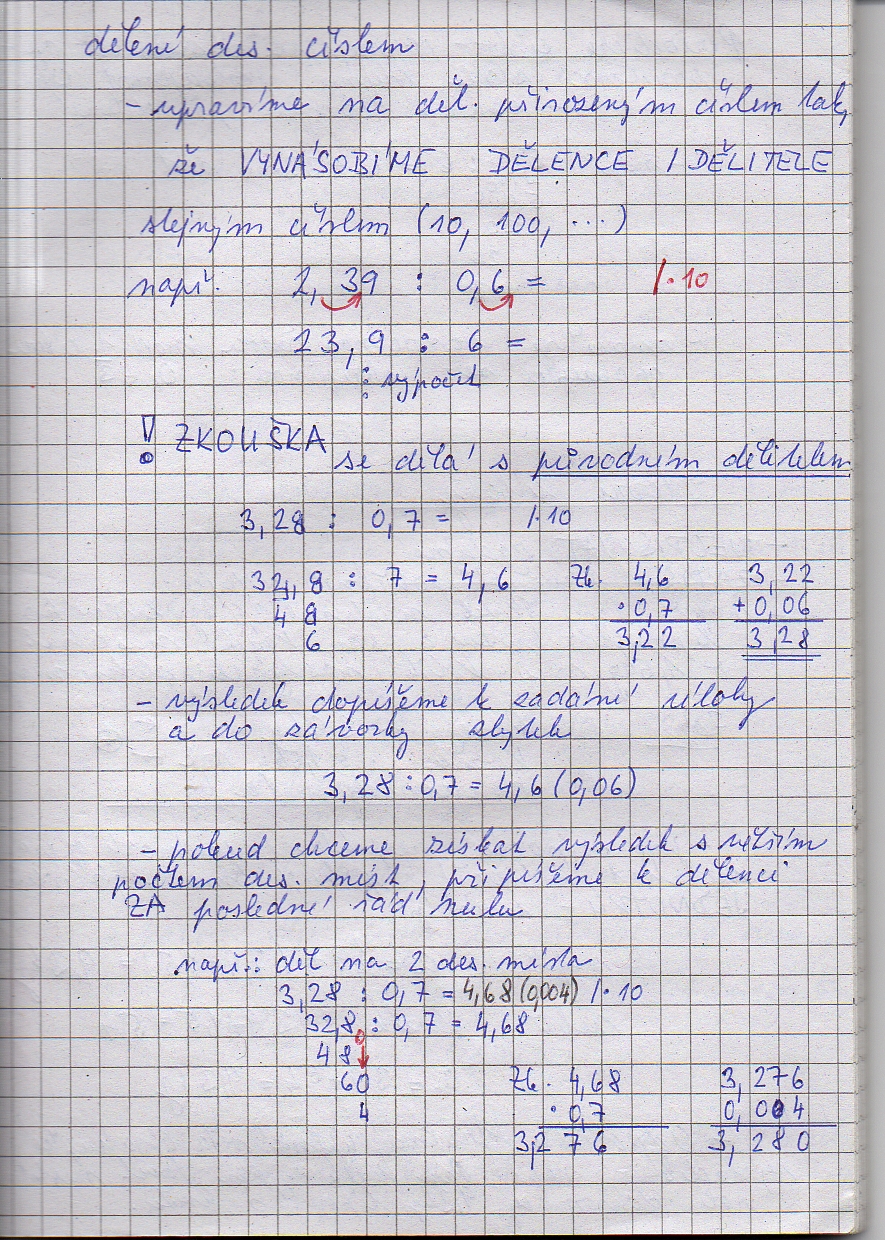 dělení des. číslem
- upravíme na děl. přirozeným číslem tak,
že VYNÁSOBÍME DĚLENCE I DĚLITELE
stejným číslem (10, 100, ...)
např. 2,39 : 0,6 = /·10
23,9 : 6 =
⋮ výpočet
! ZKOUŠKA
se dělá s původním dělitelem
3,28 : 0,7 = /·10
32,8 : 7 = 4,6 Zk. 4,6 3,22
4 8 ·0,7 +0,06
6 3,22 3,28
- výsledek dopíšeme k zadání úlohy
a do závorky zbytek
3,28 : 0,7 = 4,6 (0,06)
- pokud chceme získat výsledek s větším
počtem des. míst, připíšeme k dělenci
ZA poslední řád nulu
např.: děl na 2 des. místa
3,28 : 0,7 = 4,68 (0,004) /·10
32,80 : 0,7 = 4,68
4 8
60 Zk. 4,68 3,276
4 ·0,7 0,004
3,276 3,280